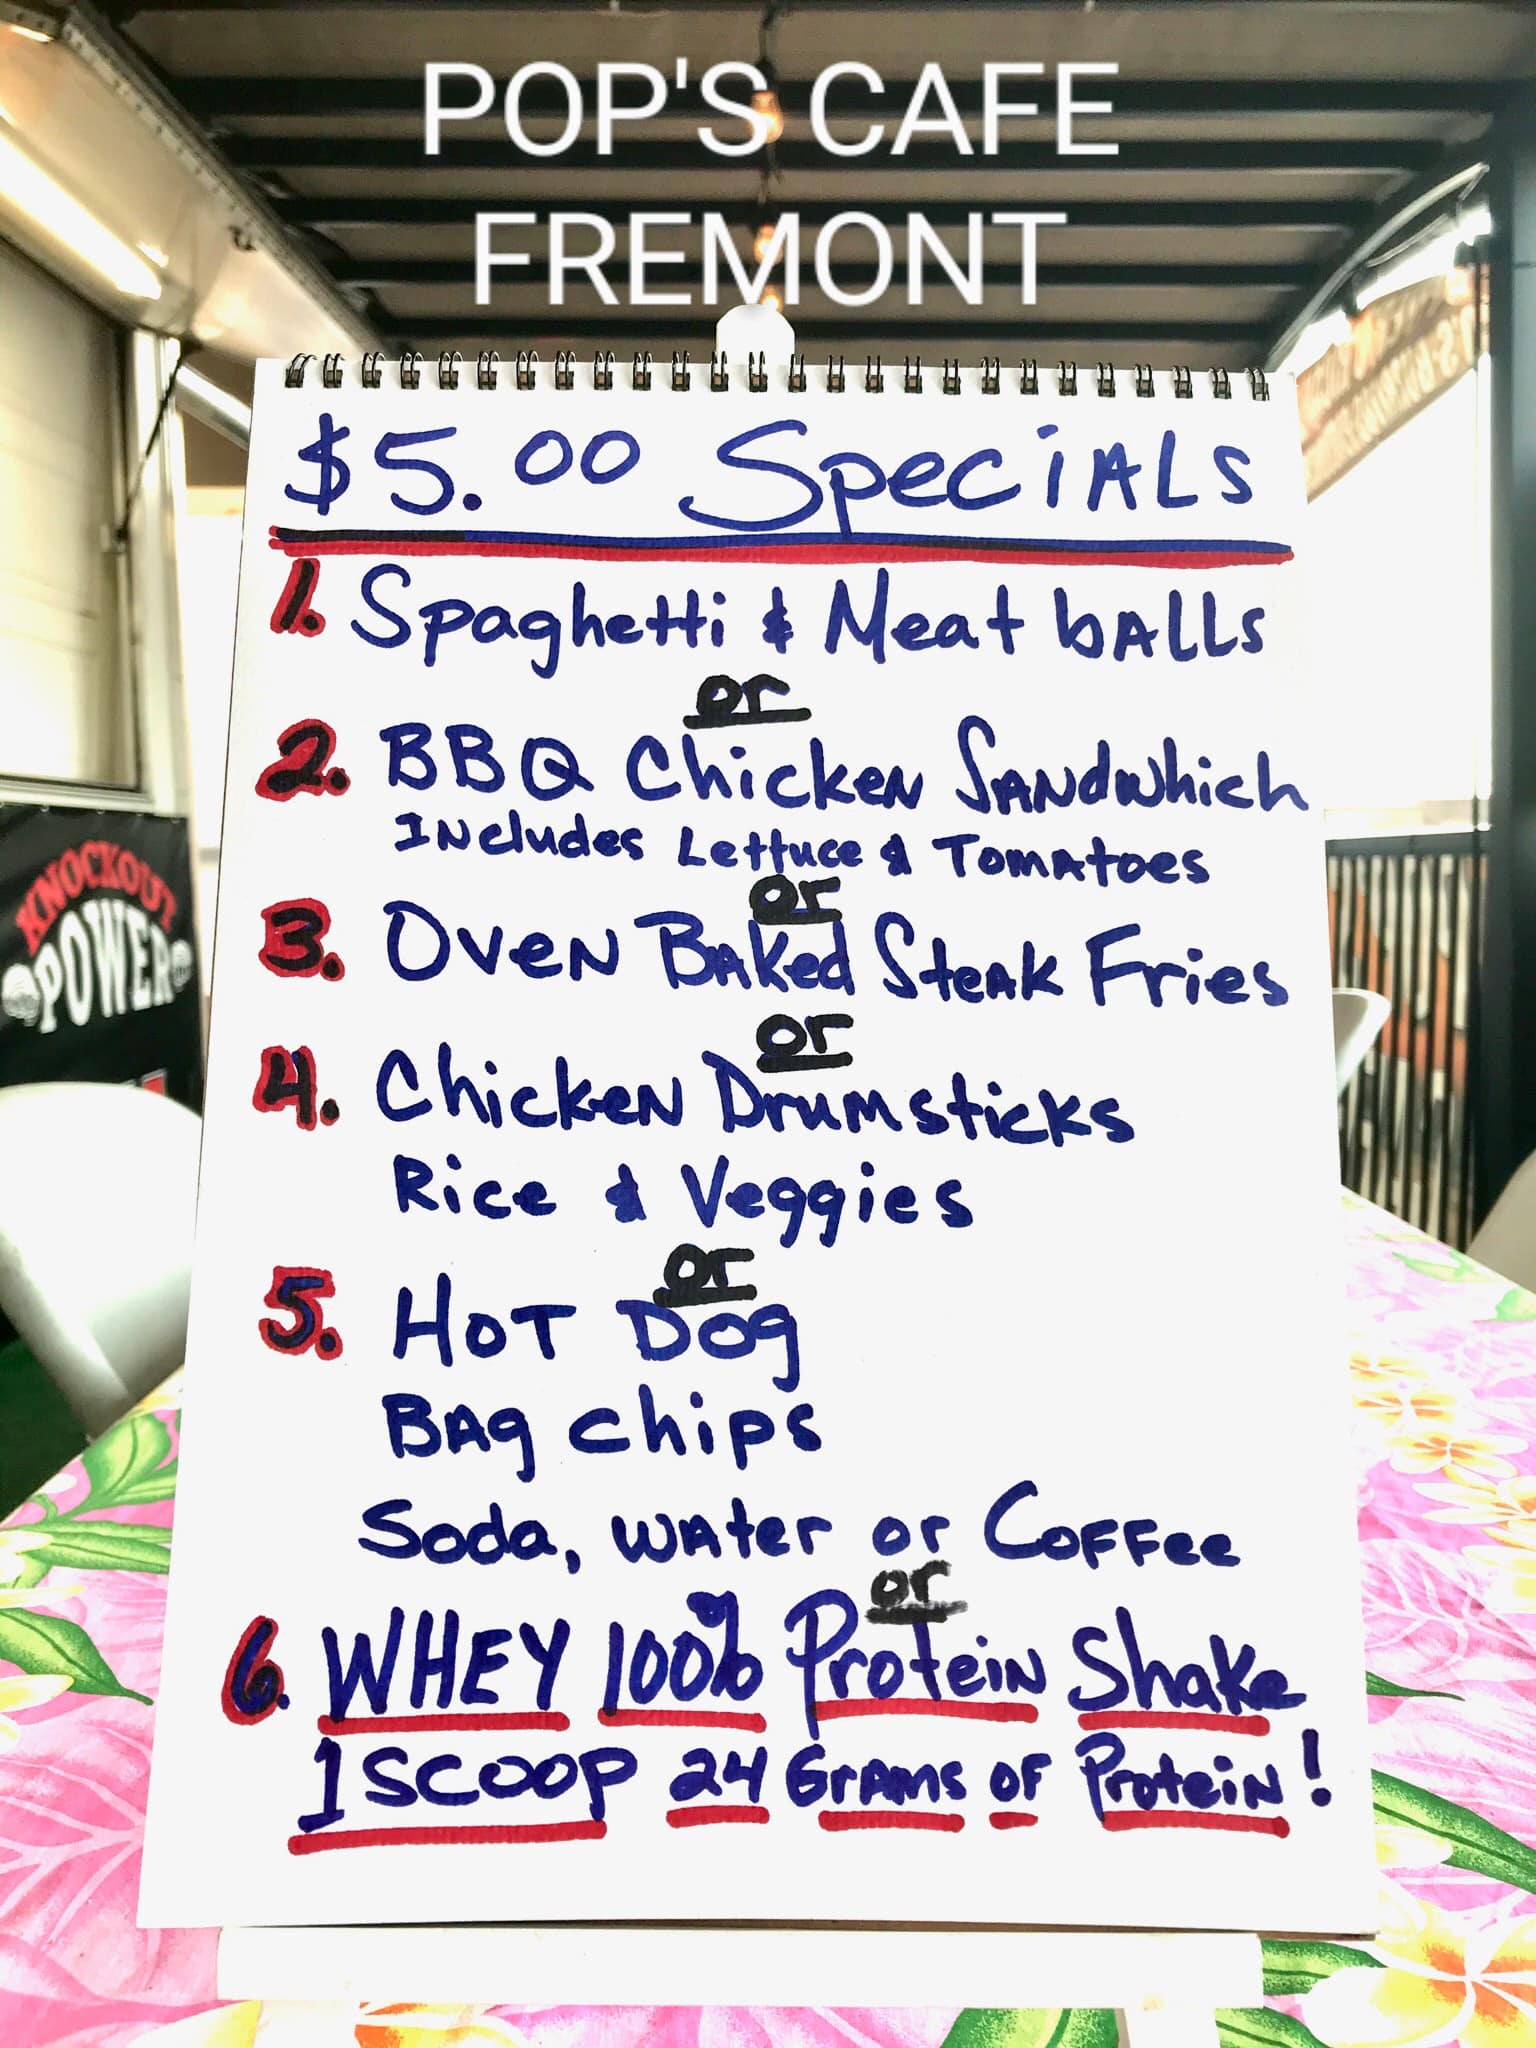 POP'S CAFE
FREMONT
$5.00 Specials
1. Spaghetti & Meat balls
or
2. BBQ Chicken Sandwhich
Includes Lettuce & Tomatoes
or
3. Oven Baked Steak Fries
or
4. Chicken Drumsticks
Rice & Veggies
or
5. Hot Dog
Bag chips
Soda, water or Coffee
or
6. WHEY 100% Protein Shake
1 SCOOP 24 Grams of Protein!
KNOCKOUT
POWER